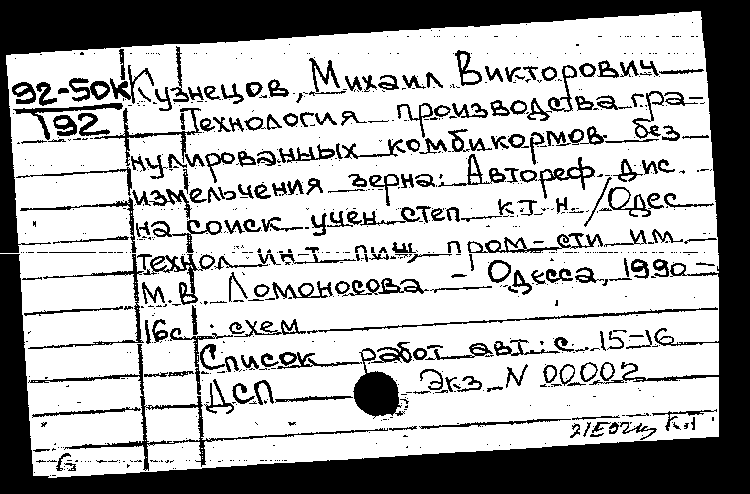 92-50К Кузнецов, Михаил Викторович
192 Технология производства гра-
нулированных комбикормов без
измельчения зерна: Автореф. дис.
на соиск учен. степ. к.т.н. / Одес
технол ин-т пищ, пром-сти им.
М.В. Ломоносова - Одесса, 1990 -
16с : схем
Список работ авт.: с. 15-16
ДСП Экз. N 00002
К.Т